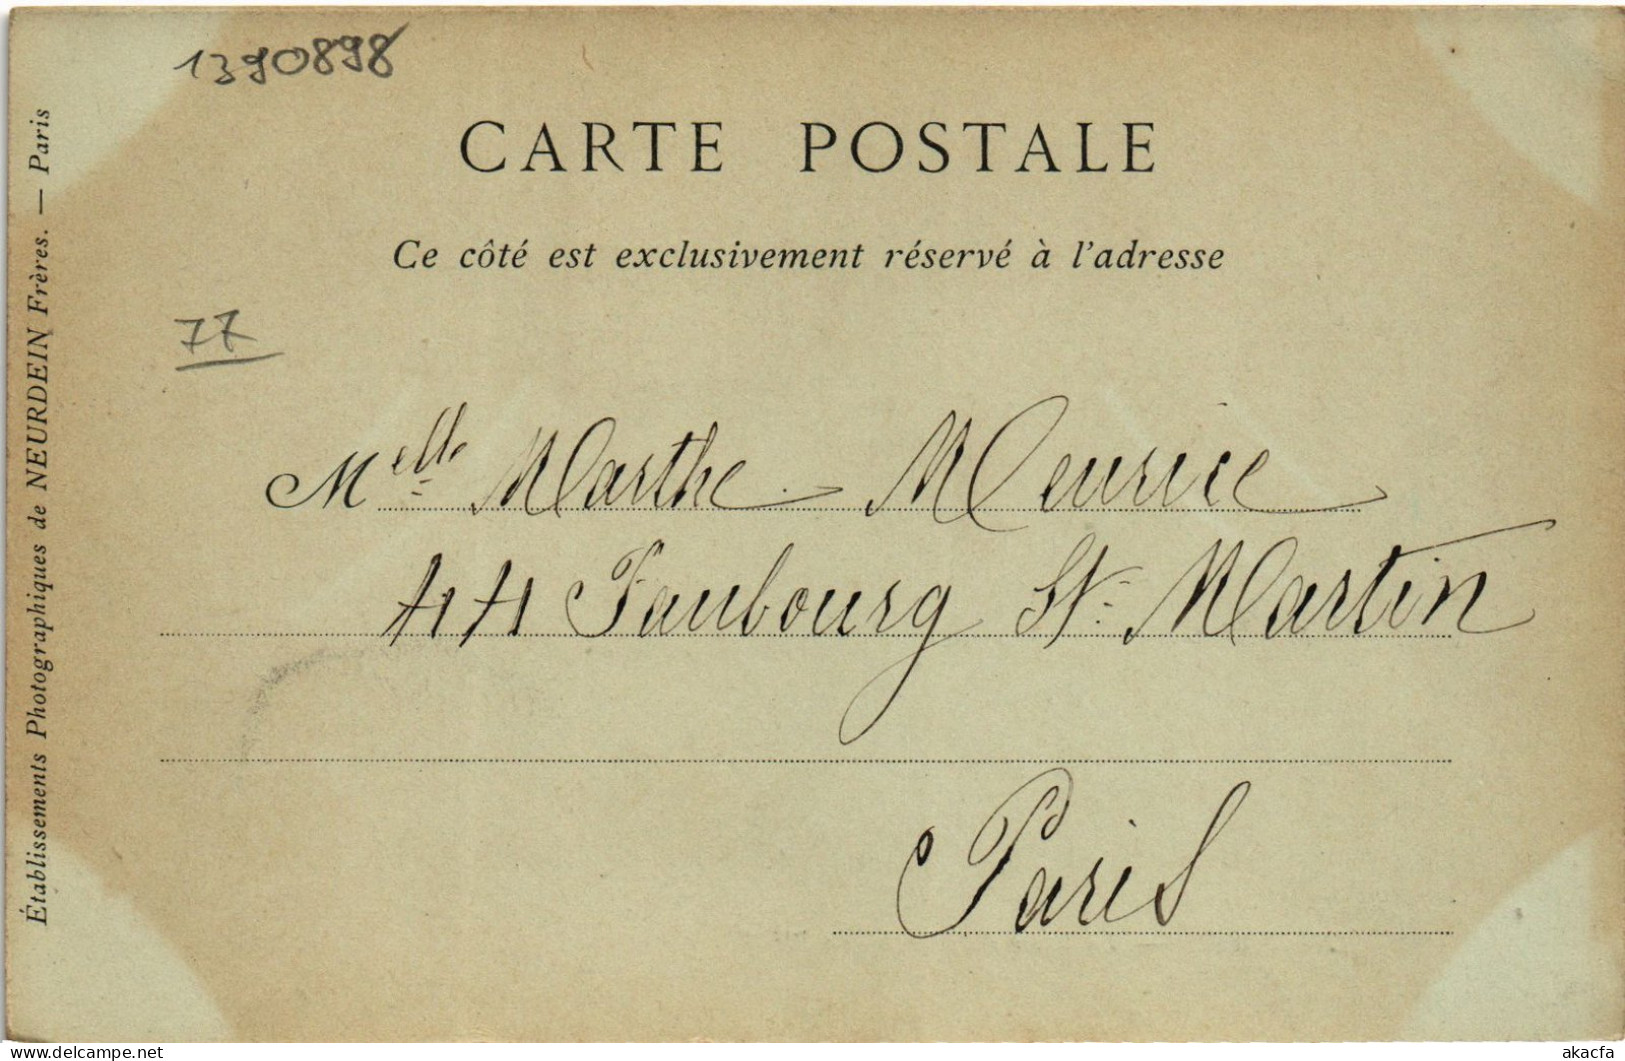 1390898
CARTE POSTALE
Ce côté est exclusivement réservé à l'adresse
77
Melle Marthe Meurice
44 Faubourg St. Martin
Paris
Établissements Photographiques de NEURDEIN Frères. — Paris
www.delcampe.net
akacfa